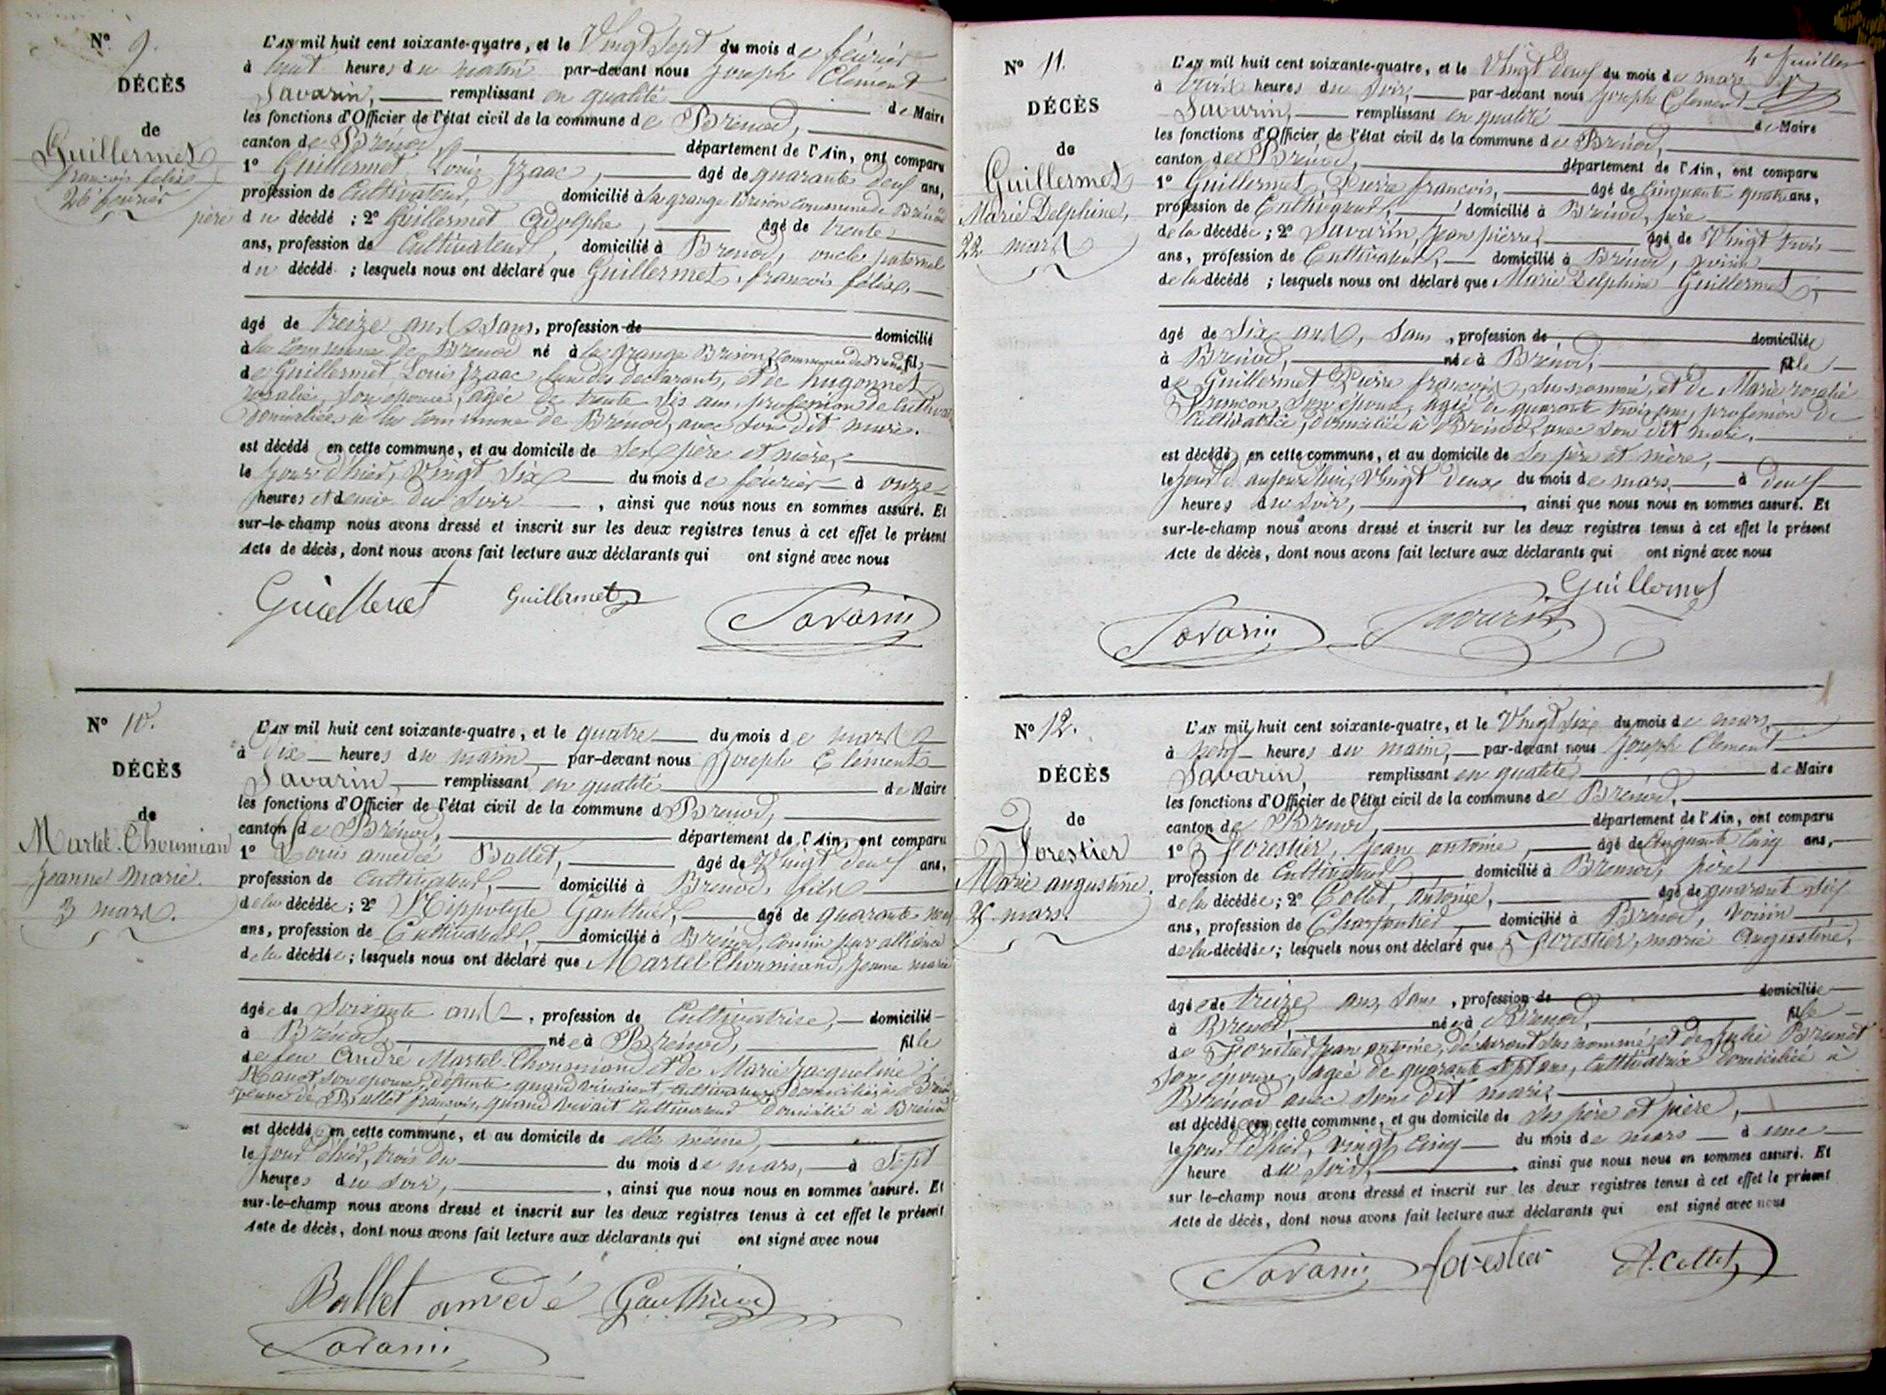 N° 9.
DÉCÈS
de
Guillermet
françois félix
26 février
L'AN mil huit cent soixante-quatre, et le Vingt sept du mois de février
à huit heures du matin par-devant nous Joseph Clément
Savarin, remplissant en qualité de Maire
les fonctions d'Officier de l'état civil de la commune de Brénod,
canton de Brénod, département de l'Ain, ont comparu
1° Guillermet, Louis Izaac, âgé de quarante deux ans,
profession de Cultivateur, domicilié à la grange Brison Commune de Brénod
père du décédé ; 2° Guillermet Adolphe, âgé de trente
ans, profession de Cultivateur, domicilié à Brénod, oncle paternel
du décédé ; lesquels nous ont déclaré que Guillermet, françois félix,
âgé de treize ans, sans, profession de domicilié
à la commune de Brénod né à la grange Brison, Commune de Brénod fils
de Guillermet Louis Izaac, l'un des déclarants, et de hugonnet
rosalie, son épouse, âgée de trente six ans, profession de Cultiva
domiciliée à la commune de Brénod, avec son dit mari.
est décédé en cette commune, et au domicile de ses père et mère,
le jour d'hier, Vingt six du mois de février à onze
heures et demie du soir, ainsi que nous nous en sommes assuré. Et
sur-le-champ nous avons dressé et inscrit sur les deux registres tenus à cet effet le présent
Acte de décès, dont nous avons fait lecture aux déclarants qui ont signé avec nous
Guillermet Guillermet Savarin
N° 10.
DÉCÈS
de
Martel-Choumian
Jeanne Marie.
3 mars.
L'AN mil huit cent soixante-quatre, et le quatre du mois de mars
à dix heures du matin par-devant nous Joseph Clément
Savarin, remplissant en qualité de Maire
les fonctions d'Officier de l'état civil de la commune d Brénod,
canton de Brénod, département de l'Ain, ont comparu
1° Louis amédée Ballet, âgé de Vingt deux ans,
profession de Cultivateur, domicilié à Brénod, fils
de la décédée ; 2° Hippolyte Gauthier, âgé de quarante neuf
ans, profession de Cultivateur, domicilié à Brénod, cousin par alliance
de la décédée ; lesquels nous ont déclaré que Martel-Choumiand, Jeanne marie
âgée de Soixante ans, profession de Cultivatrice, domicilié
à Brénod, née à Brénod, fille
de feu André Martel-Choumiand et de Marie Jacqueline
son épouse, défunte quand vivaient, cultivateurs domiciliés à Brénod
veuve de Ballet françois, quand vivait Cultivateur domicilié à Brénod
est décédé en cette commune, et au domicile de elle même,
le jour d'hier, trois du du mois de mars, à sept
heures du soir, ainsi que nous nous en sommes assuré. Et
sur-le-champ nous avons dressé et inscrit sur les deux registres tenus à cet effet le présent
Acte de décès, dont nous avons fait lecture aux déclarants qui ont signé avec nous
Ballet amedé Gauthier
Savarin
4e feuillet
N° 11.
DÉCÈS
de
Guillermet
Marie Delphine,
22 mars
L'AN mil huit cent soixante-quatre, et le Vingt deux du mois de mars
à trois heures du soir, par-devant nous Joseph Clément
Savarin, remplissant en qualité de Maire
les fonctions d'Officier de l'état civil de la commune de Brénod,
canton de Brénod, département de l'Ain, ont comparu
1° Guillermet, Pierre françois, âgé de Cinquante quatre ans,
profession de Cultivateur, domicilié à Brénod, père
de la décédée ; 2° Savarin, Jean pierre, âgé de Vingt trois
ans, profession de Cultivateur, domicilié à Brénod, voisin
de la décédé ; lesquels nous ont déclaré que Marie Delphine Guillermet,
âgé de Six ans, sans, profession de, domiciliée
à Brénod, née à Brénod, fille
de Guillermet Pierre françois, susnommé, et de Marie rosalie
son épouse, âgée de quarante trois ans, profession de
Cultivatrice, domiciliée à Brénod, avec son dit mari.
est décédé en cette commune, et au domicile de ses père et mère,
le jour d'aujourd'hui, Vingt deux du mois de mars, à deux
heures du soir, ainsi que nous nous en sommes assuré. Et
sur-le-champ nous avons dressé et inscrit sur les deux registres tenus à cet effet le présent
Acte de décès, dont nous avons fait lecture aux déclarants qui ont signé avec nous
Guillermet
Savarin Savarin
N° 12.
DÉCÈS
de
Forestier
Marie augustine.
25 mars.
L'AN mil huit cent soixante-quatre, et le Vingt six du mois de mars,
à neuf heures du matin, par-devant nous Joseph Clément
Savarin, remplissant en qualité de Maire
les fonctions d'Officier de l'état civil de la commune de Brénod,
canton de Brénod, département de l'Ain, ont comparu
1° Forestier, Jean antoine, âgé de Cinquante Cinq ans,
profession de Cultivateur domicilié à Brénod, père
de la décédée ; 2° Collet, antoine, âgé de quarante dix
ans, profession de Charpentier, domicilié à Brénod, voisin
de la décédée ; lesquels nous ont déclaré que Forestier, marie Augustine,
âgée de treize ans, sans, profession de domiciliée
à Brénod, née à Brénod, fille
de Forestier Jean antoine, déclarant susnommé, et de Julie Brunet
son épouse, âgée de quarante sept ans, Cultivatrice domiciliée à
Brénod avec son dit mari,
est décédé en cette commune, et au domicile de ses père et mère,
le jour d'hier, vingt cinq du mois de mars à une
heure du soir, ainsi que nous nous en sommes assuré. Et
sur le-champ nous avons dressé et inscrit sur les deux registres tenus à cet effet le présent
Acte de décès, dont nous avons fait lecture aux déclarants qui ont signé avec nous
Savarin forestier A. Collet